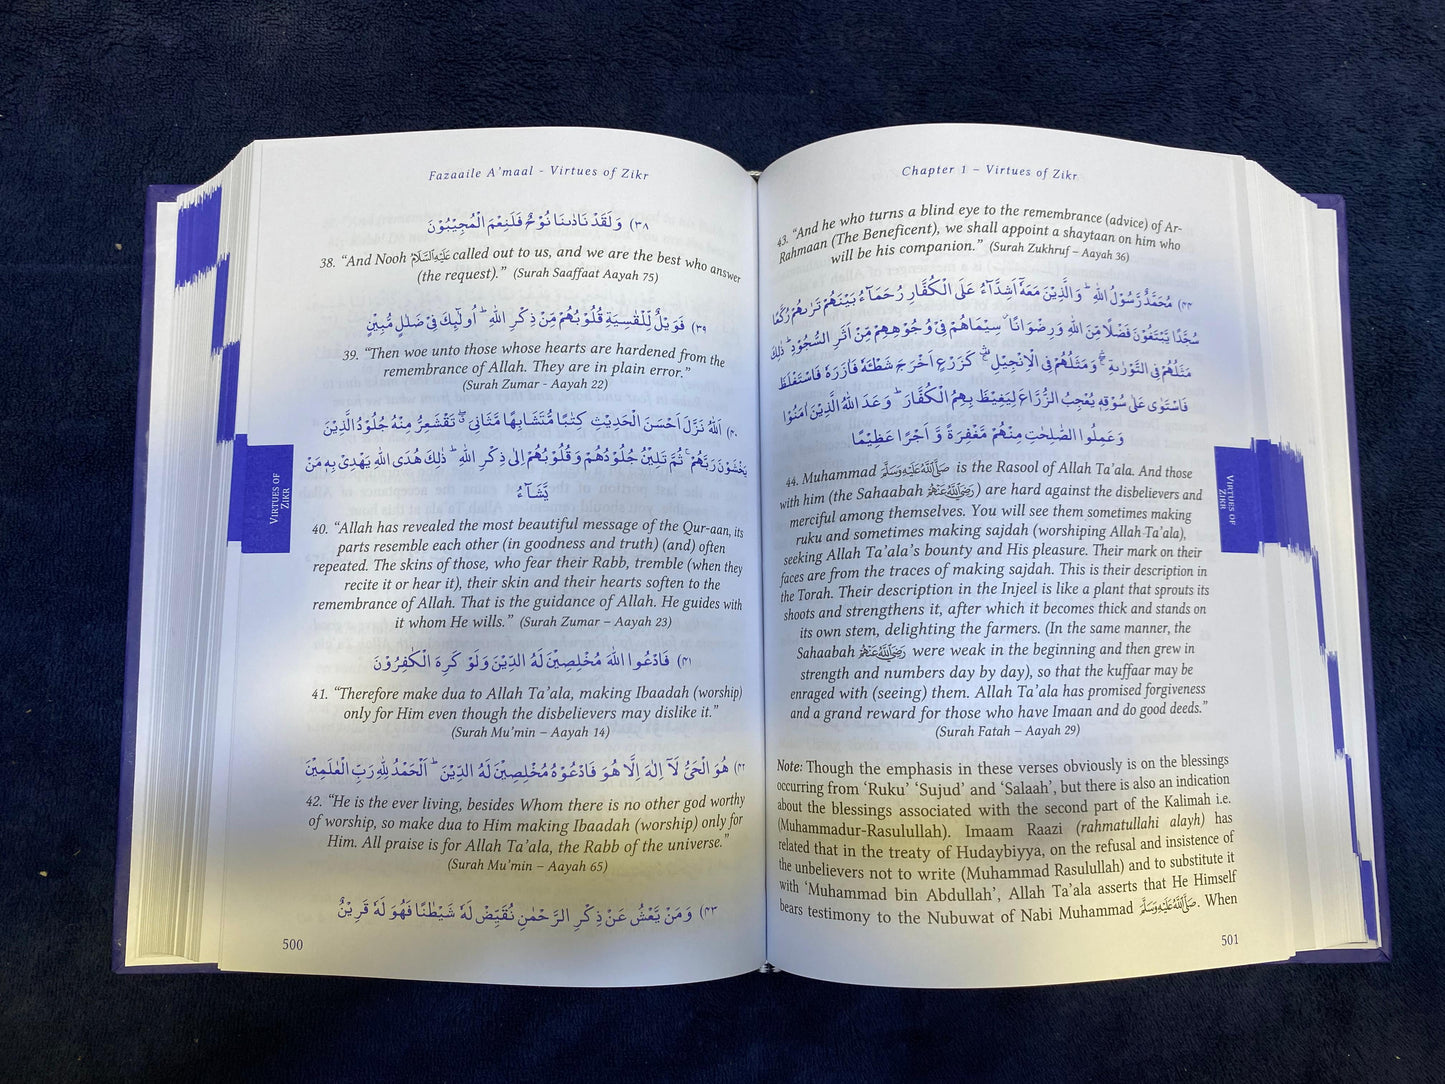 Fazaaile A'maal - Virtues of Zikr
۳۸) وَلَقَدْ نَادٰىنَا نُوْحٌ فَلَنِعْمَ الْمُجِيْبُوْنَ
38. “And Nooh عَلَيْهِ السَّلَام called out to us, and we are the best who answer
(the request).” (Surah Saaffaat Aayah 75)
۳۹) فَوَيْلٌ لِّلْقٰسِيَةِ قُلُوْبُهُمْ مِّنْ ذِكْرِ اللهِ ؕ اُولٰٓئِكَ فِيْ ضَلٰلٍ مُّبِيْنٍ
39. “Then woe unto those whose hearts are hardened from the
remembrance of Allah. They are in plain error.”
(Surah Zumar - Aayah 22)
۴۰) اَللهُ نَزَّلَ اَحْسَنَ الْحَدِيْثِ كِتٰبًا مُّتَشَابِهًا مَّثَانِيَ ۖ تَقْشَعِرُّ مِنْهُ جُلُوْدُ الَّذِيْنَ
يَخْشَوْنَ رَبَّهُمْ ۚ ثُمَّ تَلِيْنُ جُلُوْدُهُمْ وَقُلُوْبُهُمْ اِلٰى ذِكْرِ اللهِ ؕ ذٰلِكَ هُدَى اللهِ يَهْدِيْ بِهٖ مَنْ
يَّشَآءُ
VIRTUES OF
ZIKR
40. “Allah has revealed the most beautiful message of the Qur-aan, its
parts resemble each other (in goodness and truth) (and) often
repeated. The skins of those, who fear their Rabb, tremble (when they
recite it or hear it), their skin and their hearts soften to the
remembrance of Allah. That is the guidance of Allah. He guides with
it whom He wills.” (Surah Zumar – Aayah 23)
۴۱) فَادْعُوا اللهَ مُخْلِصِيْنَ لَهُ الدِّيْنَ وَلَوْ كَرِهَ الْكٰفِرُوْنَ
41. “Therefore make dua to Allah Ta'ala, making Ibaadah (worship)
only for Him even though the disbelievers may dislike it.”
(Surah Mu'min – Aayah 14)
۴۲) هُوَ الْحَيُّ لَآ اِلٰهَ اِلَّا هُوَ فَادْعُوْهُ مُخْلِصِيْنَ لَهُ الدِّيْنَ ؕ اَلْحَمْدُ لِلّٰهِ رَبِّ الْعٰلَمِيْنَ
42. “He is the ever living, besides Whom there is no other god worthy
of worship, so make dua to Him making Ibaadah (worship) only for
Him. All praise is for Allah Ta'ala, the Rabb of the universe.”
(Surah Mu'min – Aayah 65)
۴۳) وَمَنْ يَّعْشُ عَنْ ذِكْرِ الرَّحْمٰنِ نُقَيِّضْ لَهٗ شَيْطٰنًا فَهُوَ لَهٗ قَرِيْنٌ
500
Chapter 1 – Virtues of Zikr
43. “And he who turns a blind eye to the remembrance (advice) of Ar-
Rahmaan (The Beneficent), we shall appoint a shaytaan on him who
will be his companion.” (Surah Zukhruf – Aayah 36)
۴۴) مُحَمَّدٌ رَّسُوْلُ اللهِ ؕ وَالَّذِيْنَ مَعَهٗٓ اَشِدَّآءُ عَلَى الْكُفَّارِ رُحَمَآءُ بَيْنَهُمْ تَرٰىهُمْ رُكَّعًا
سُجَّدًا يَّبْتَغُوْنَ فَضْلًا مِّنَ اللهِ وَرِضْوَانًا ؗ سِيْمَاهُمْ فِيْ وُجُوْهِهِمْ مِّنْ اَثَرِ السُّجُوْدِ ؕ ذٰلِكَ
مَثَلُهُمْ فِي التَّوْرٰىةِ ۛۖ وَمَثَلُهُمْ فِي الْاِنْجِيْلِ ۛۚ كَزَرْعٍ اَخْرَجَ شَطْـَٔهٗ فَاٰزَرَهٗ فَاسْتَغْلَظَ
فَاسْتَوٰى عَلٰى سُوْقِهٖ يُعْجِبُ الزُّرَّاعَ لِيَغِيْظَ بِهِمُ الْكُفَّارَ ؕ وَعَدَ اللهُ الَّذِيْنَ اٰمَنُوْا
وَعَمِلُوا الصّٰلِحٰتِ مِنْهُمْ مَّغْفِرَةً وَّ اَجْرًا عَظِيْمًا
44. Muhammad صَلَّى اللهُ عَلَيْهِ وَسَلَّمَ is the Rasool of Allah Ta'ala. And those
with him (the Sahaabah رَضِيَ اللهُ عَنْهُمْ) are hard against the disbelievers and
merciful among themselves. You will see them sometimes making
ruku and sometimes making sajdah (worshiping Allah Ta'ala),
seeking Allah Ta'ala's bounty and His pleasure. Their mark on their
faces are from the traces of making sajdah. This is their description in
the Torah. Their description in the Injeel is like a plant that sprouts its
shoots and strengthens it, after which it becomes thick and stands on
its own stem, delighting the farmers. (In the same manner, the
Sahaabah رَضِيَ اللهُ عَنْهُمْ were weak in the beginning and then grew in
strength and numbers day by day), so that the kuffaar may be
enraged with (seeing) them. Allah Ta'ala has promised forgiveness
and a grand reward for those who have Imaan and do good deeds.”
(Surah Fatah – Aayah 29)
VIRTUES OF
ZIKR
Note: Though the emphasis in these verses obviously is on the blessings
occurring from ‘Ruku’ ‘Sujud’ and ‘Salaah’, but there is also an indication
about the blessings associated with the second part of the Kalimah i.e.
(Muhammadur-Rasulullah). Imaam Raazi (rahmatullahi alayh) has
related that in the treaty of Hudaybiyya, on the refusal and insistence of
the unbelievers not to write (Muhammad Rasulullah) and to substitute it
with ‘Muhammad bin Abdullah’, Allah Ta'ala asserts that He Himself
bears testimony to the Nubuwat of Nabi Muhammad صَلَّى اللهُ عَلَيْهِ وَسَلَّمَ. When
501